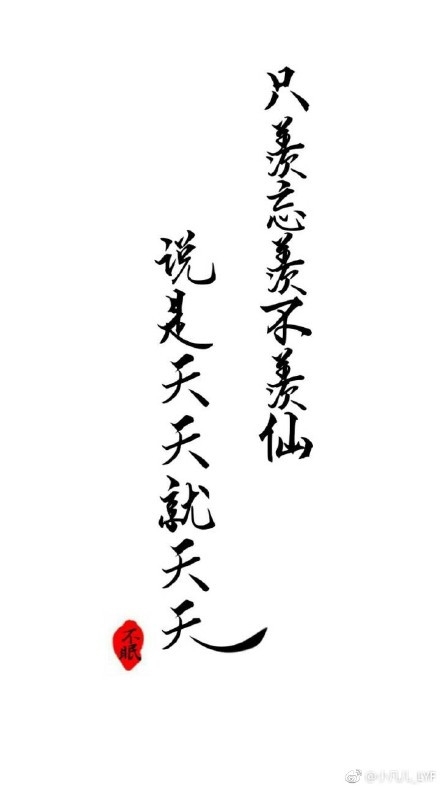 只羡忘羡不羡仙
说是天天就天天
不眠
@小凡儿_LYF